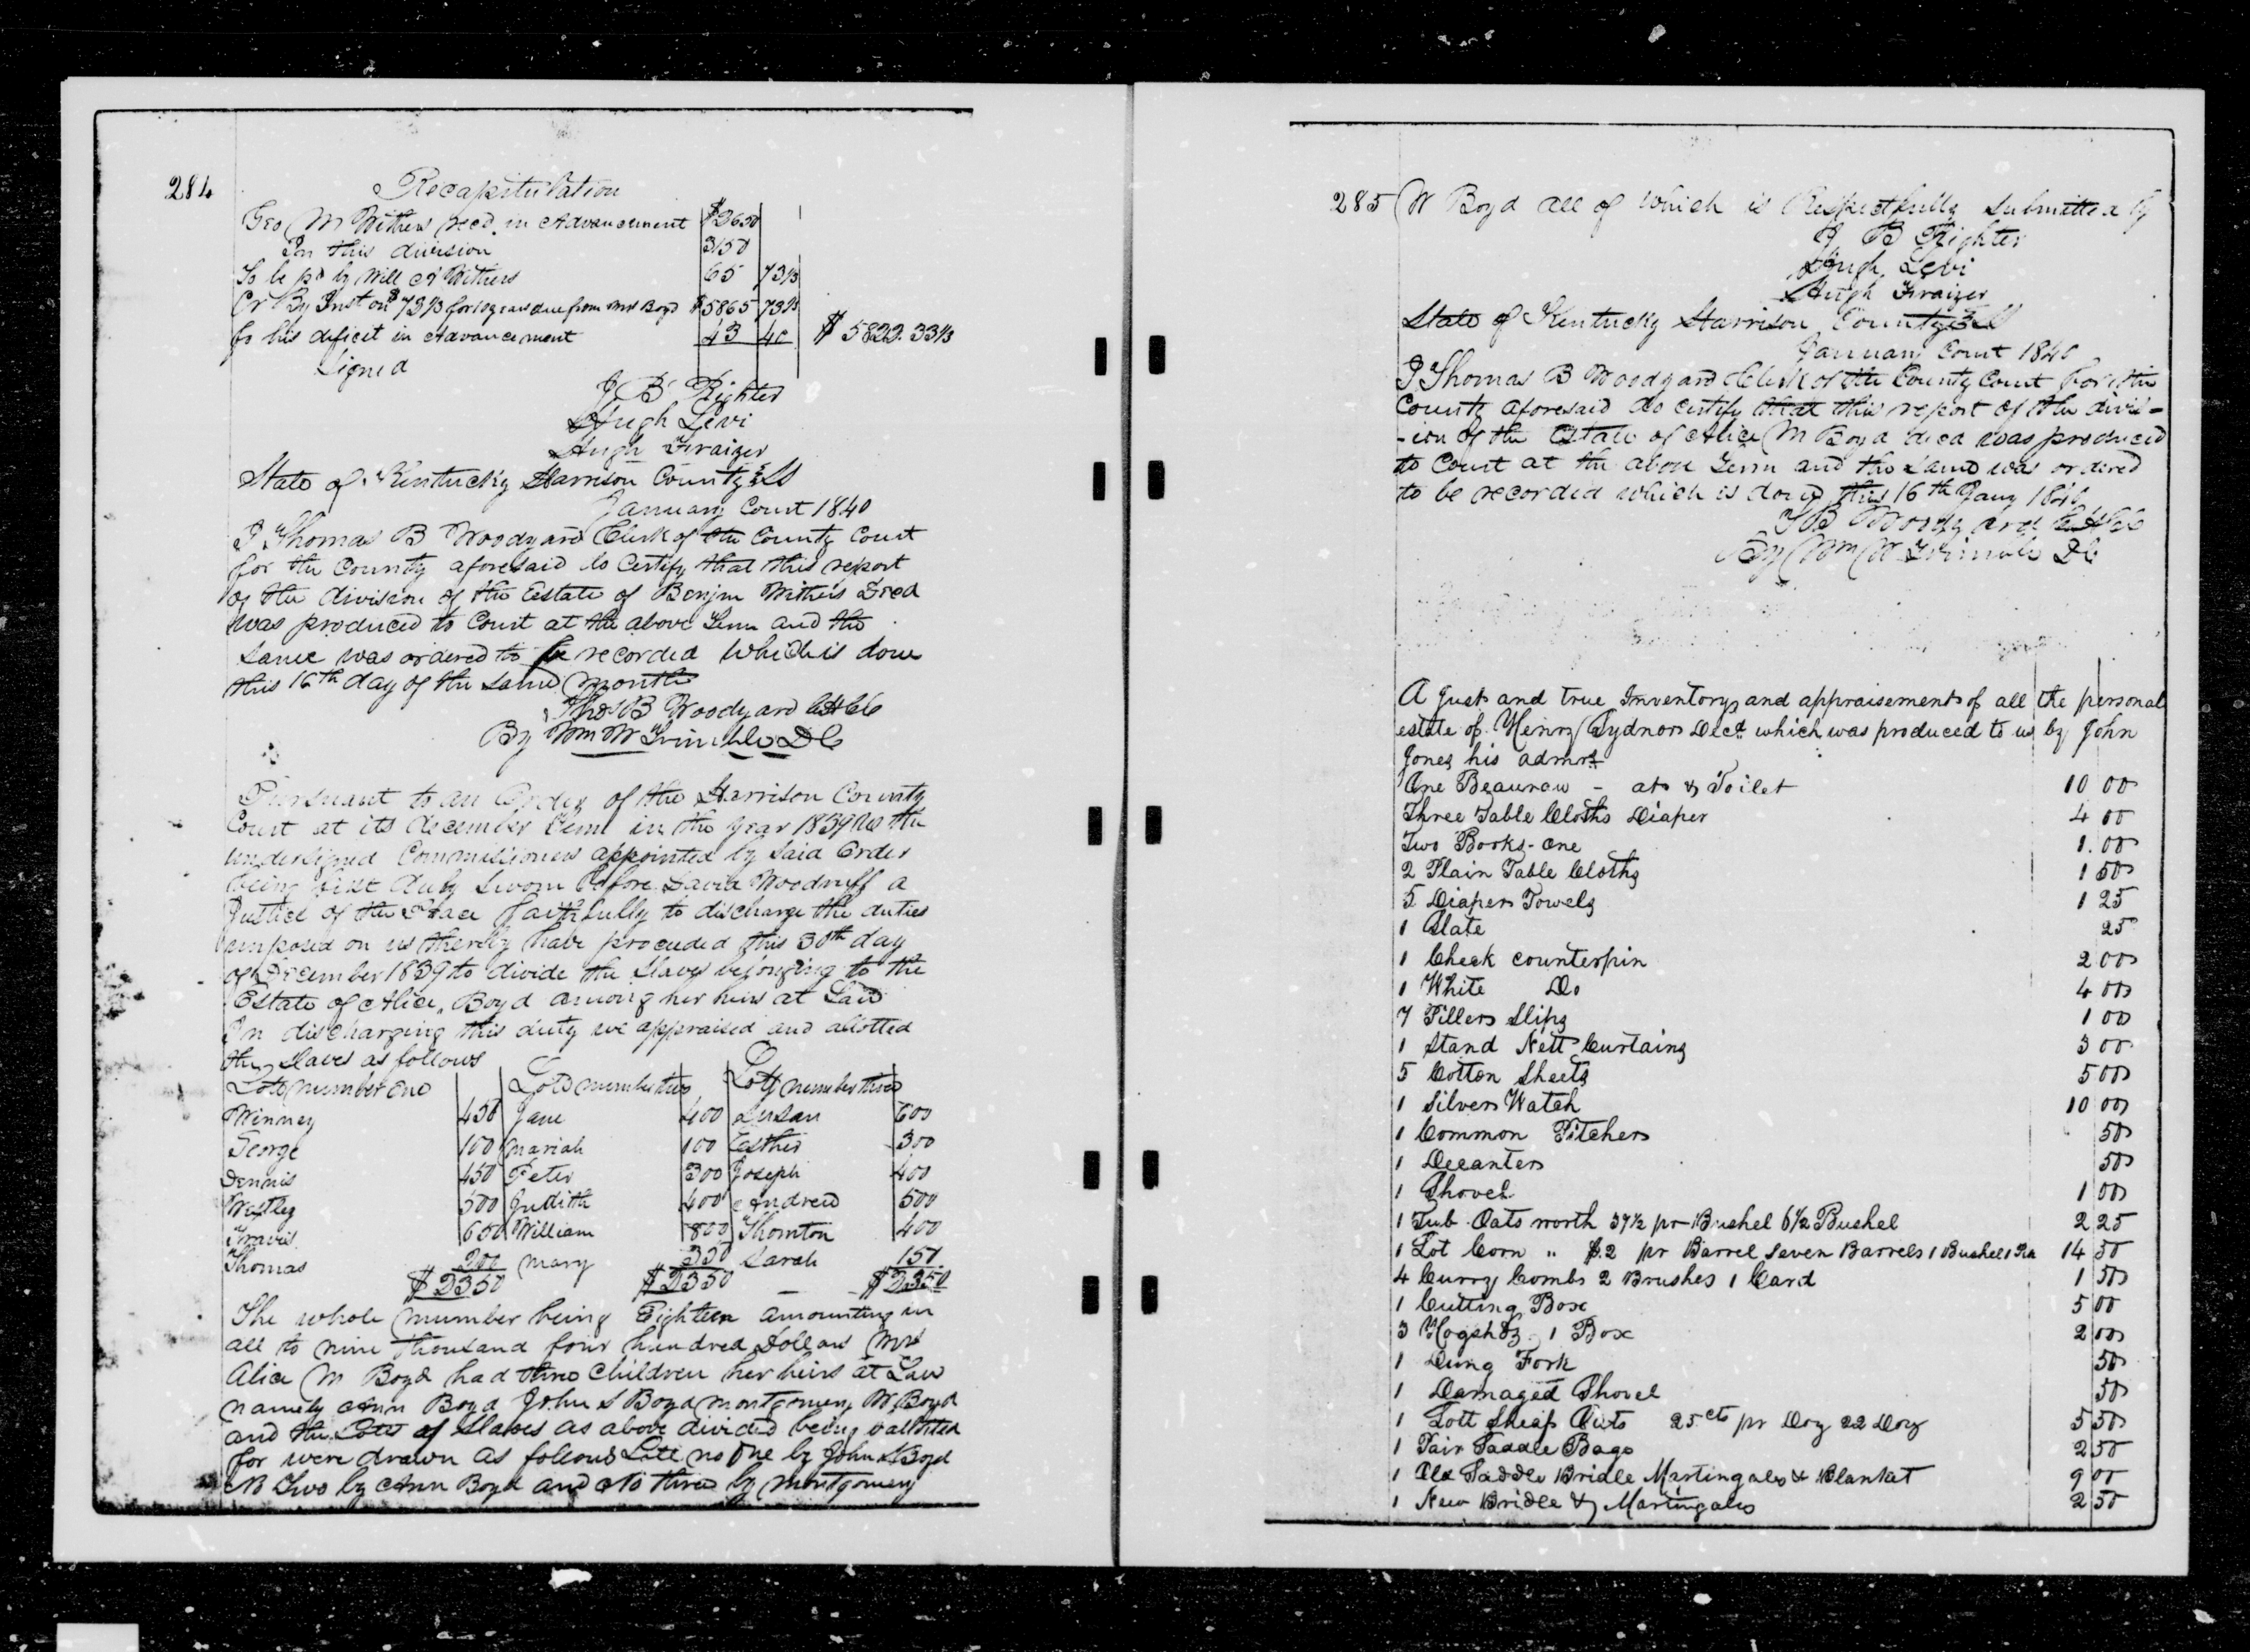 284
Recapitulation
Geo M Withers recd. in Advancement $2650
In this division 3150
To be pd by Will A Withers 65 73⅓
Cr By Inst on $ 73⅓ for 10 years due from Mrs Boyd $5865 73⅓
for his deficit in Advancement 43 40 $ 5822.33⅓
Signed
J B Righter
Hugh Levi
Hugh Fraizer
State of Kentucky Harrison County Ss
January Court 1840
I Thomas B Woodyard Clerk of the County Court
for the County aforesaid do Certify that this report
of the division of the Estate of Benjm Withers Decd
was produced to Court at the above Term and the
same was ordered to be recorded which is done
this 16th day of the same month
Thos B Woodyard
By Wm W Trimble DC
Pursuant to an Order of the Harrison County
Court at its december Term in the year 1839 We the
undersigned Commissioners appointed by said Order
being first duly sworn before David Woodruff a
Justice of the Peace faithfully to discharge the duties
imposed on us thereby have proceeded this 30th day
of December 1839 to divide the Slaves belonging to the
Estate of Alice Boyd among her heirs at Law
In discharging this duty we appraised and allotted
the Slaves as follows
Lott number one Lott number two Lott number three
Winney 450 Jane 400 Susan 600
George 100 Mariah 100 Esther 300
Dennis 450 Peter 300 Joseph 400
Westley 500 Judith 400 Andrew 500
Travis 650 William 800 Thornton 400
Thomas 200 Mary 350 Sarah 150
$2350 $2350 $2350
The whole number being Eighteen amounting in
all to nine thousand four hundred Dollars Mrs
Alice M Boyd had three Children her heirs at Law
namely Ann Boyd John S Boyd Montgomery W Boyd
and the Lotts of Slaves as above divided being ballotted
for were drawn as follows Lott no One by John S Boyd
No Two by Ann Boyd and No three by Montgomery
285 W Boyd all of which is Respectfully submitted by
J B Righter
Hugh Levi
Hugh Fraizer
State of Kentucky Harrison County Ss
January Court 1840
I Thomas B Woodyard Clerk of the County Court for the
County aforesaid do certify that this report of the divis-
-ion of the Estate of Alice M Boyd decd was produced
to Court at the above Term and the same was ordered
to be recorded which is done this 16th Jany 1840
T B Woodyard
By Wm W Trimble DC
A Just and true Inventory and appraisement of all the personal
estate of Henry Sydnor Decd which was produced to us by John
Jones his admor
One Beaurow - at & Toilet 10 00
Three Table Cloths Diaper 4 00
Two Books - One 1.00
2 Plain Table Cloths 1 50
5 Diaper Towels 1 25
1 Slate 25
1 Check counterpin 2 00
1 White Do 4 00
7 Pillers Slips 1 00
1 Stand Nett Curtains 3 00
5 Cotton Sheets 5 00
1 Silver Watch 10 00
1 Common Pitcher 50
1 Decanter 50
1 Shovel 1 00
1 Tub Oats worth 37½ pr Bushel 6½ Bushel 2 25
1 Lot Corn " $.2 pr Barrel Seven Barrels 1 Bushel 14 50
4 Curry Combs 2 Brushes 1 Card 1 50
1 Cutting Box 5 00
3 Hogshds 1 Box 2 00
1 Dung Fork 50
1 Damaged Shovel 50
1 Lott Sheaf Oats 25cts pr Doz 22 Doz 5 50
1 Pair Saddle Bags 2 50
1 Old Saddle Bridle Martingales & Blanket 9 00
1 New Bridle & Martingales 2 50